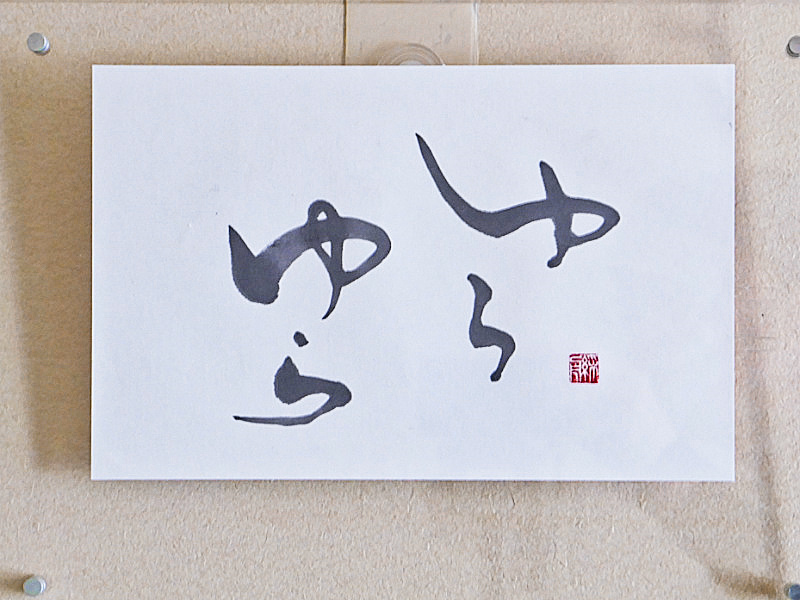 ゆら
ゆら